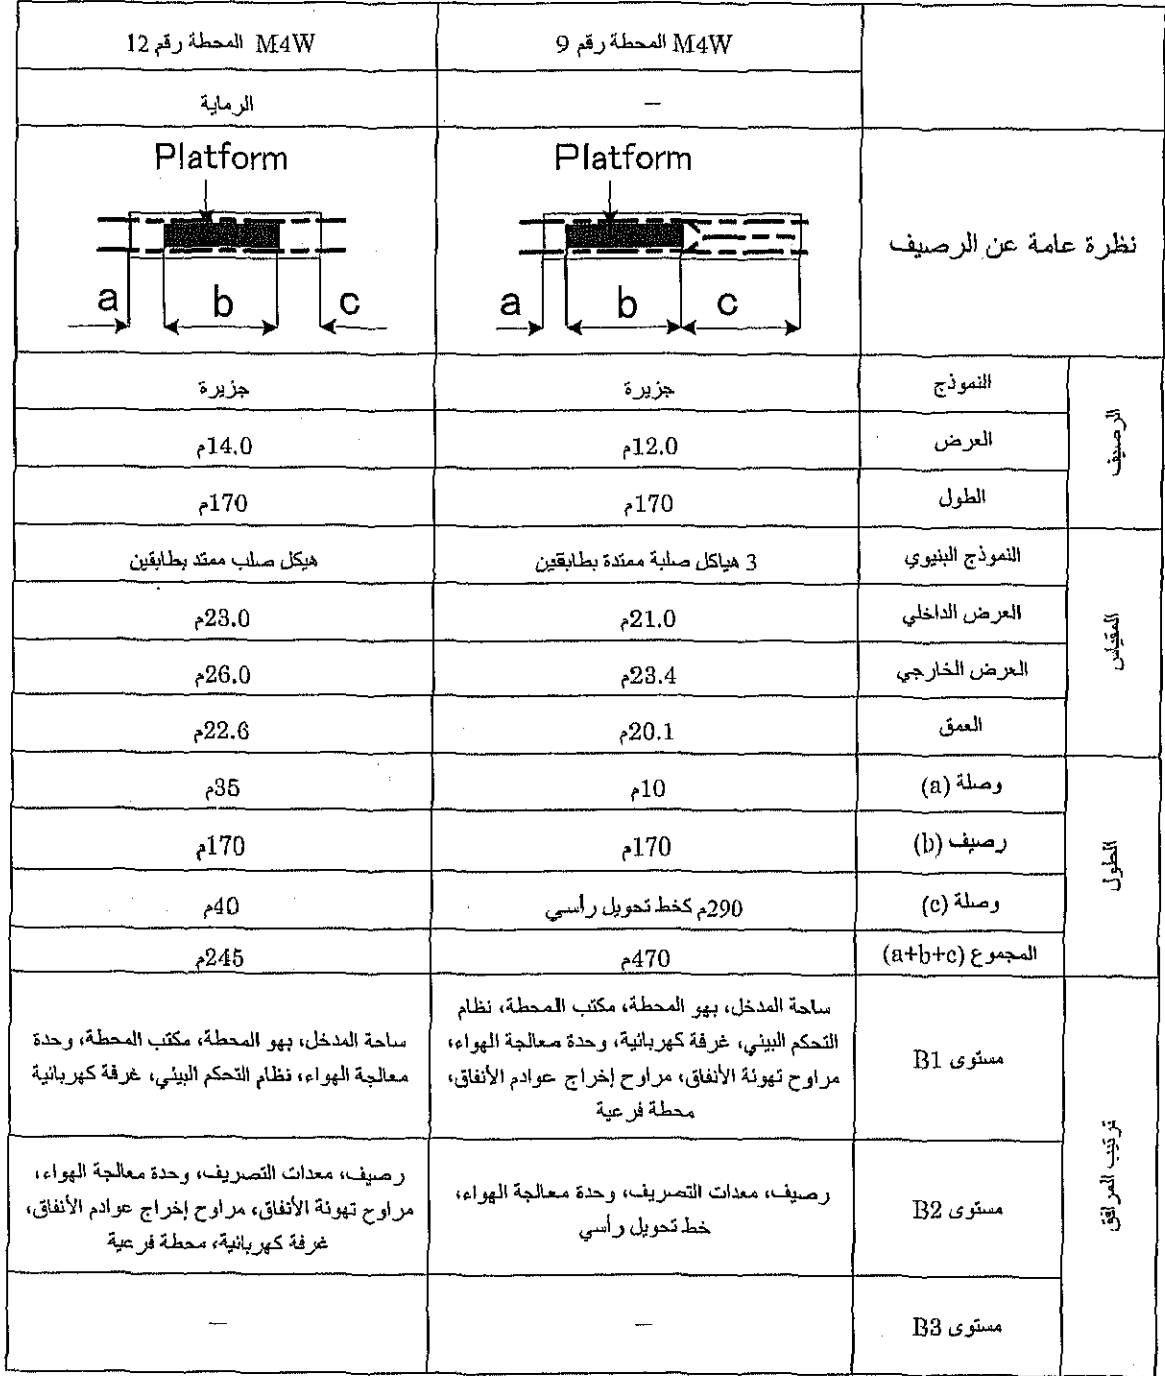 M4W المحطة رقم 9
M4W المحطة رقم 12
—
الرماية
نظرة عامة عن الرصيف
Platform
a b c
Platform
a b c
الرصيف
النموذج
جزيرة
جزيرة
العرض
12.0م
14.0م
الطول
170م
170م
المقياس
النموذج البنيوي
3 هياكل صلبة ممتدة بطابقين
هيكل صلب ممتد بطابقين
العرض الداخلي
21.0م
23.0م
العرض الخارجي
23.4م
26.0م
العمق
20.1م
22.6م
الطول
وصلة (a)
10م
35م
رصيف (b)
170م
170م
وصلة (c)
290م كخط تحويل رأسي
40م
المجموع (a+b+c)
470م
245م
ترتيب المرافق
مستوى B1
ساحة المدخل، بهو المحطة، مكتب المحطة، نظام
التحكم البيئي، غرفة كهربائية، وحدة معالجة الهواء،
مراوح تهوئة الأنفاق، مراوح إخراج عوادم الأنفاق،
محطة فرعية
ساحة المدخل، بهو المحطة، مكتب المحطة، وحدة
معالجة الهواء، نظام التحكم البيئي، غرفة كهربائية
مستوى B2
رصيف، معدات التصريف، وحدة معالجة الهواء،
خط تحويل رأسي
رصيف، معدات التصريف، وحدة معالجة الهواء،
مراوح تهوئة الأنفاق، مراوح إخراج عوادم الأنفاق،
غرفة كهربائية، محطة فرعية
مستوى B3
—
—